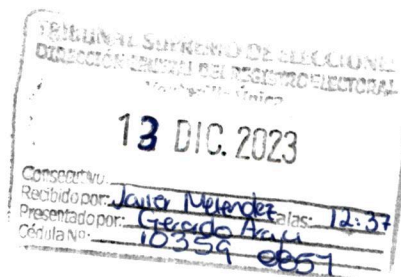 TRIBUNAL SUPREMO DE ELECCIONES
DIRECCIÓN GENERAL DEL REGISTRO ELECTORAL
Ventanilla Única
13 DIC. 2023
Consecutivo:
Recibido por: Javier Melendez a las: 12:37
Presentado por: Gerardo Araya
Cédula Nº: 10359 0857